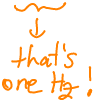 that's
one Hz!